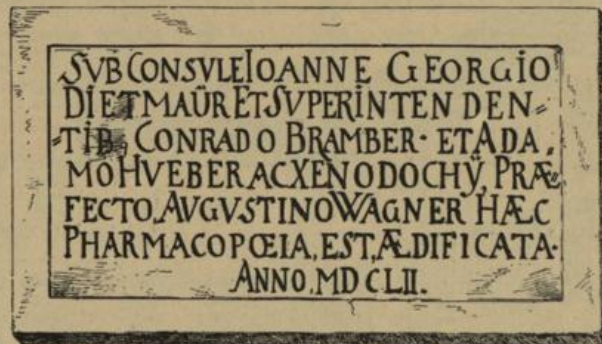 SVB CONSVLE IOANNE GEORGIO
DIETMAŸR ET SVPERINTENDEN=
=TIB, CONRADO BRAMBER· ET ADA,
MO HVEBER AC XENODOCHŸ, PRÆ=
FECTO, AVGVSTINO WAGNER HÆC
PHARMACOPŒIA, EST, ÆDIFICATA·
ANNO, MDCLII.